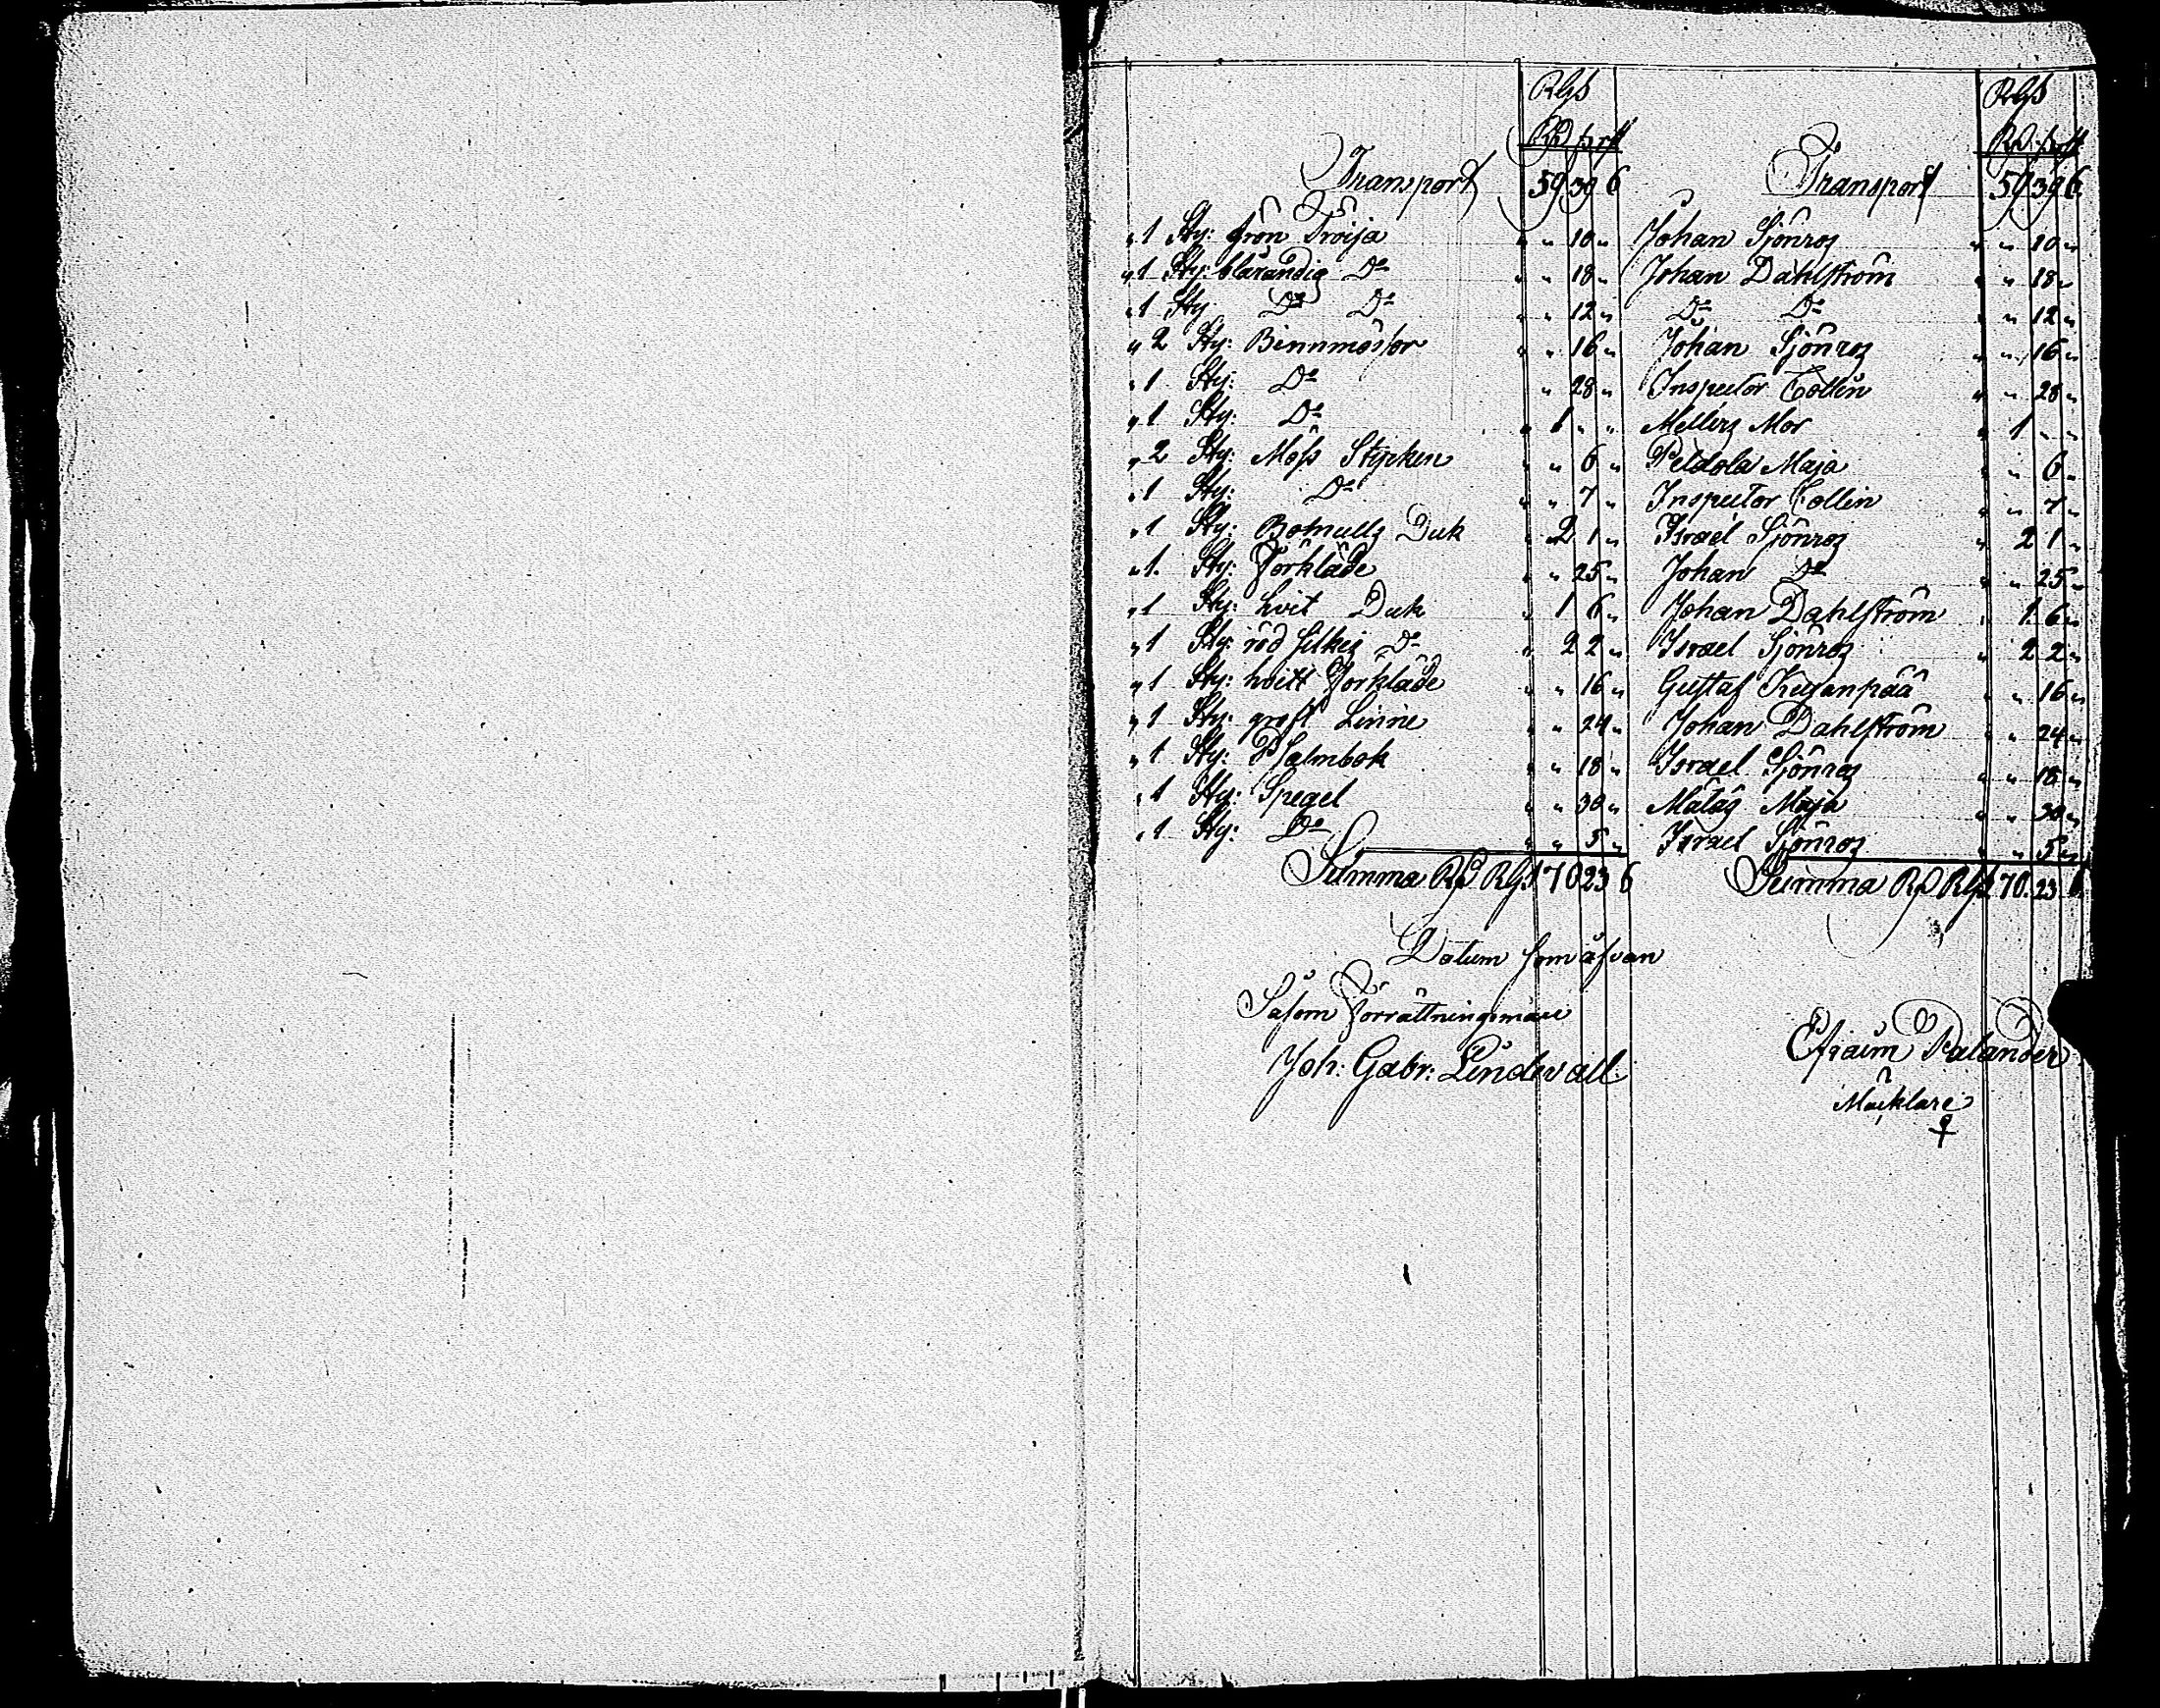 RGs RGs
RD sk rst RD sk rst
Transport 59 39 6 Transport 59 39 6
" 1 Sty: grön Tröija " " 10 " Johan Sjönros " " 10 "
" 1 Sty: blårandig Do " " 18 " Johan Dahlström " " 18 "
" 1 Sty Do Do " " 12 " Do Do " " 12 "
" 2 Sty: Binnmössor " " 16 " Johan Sjönros " " 16 "
" 1 Sty: Do " 28 " Inspector Collin " " 28 "
" 1 Sty: Do " 1 " " Mellers Mor " 1 " "
" 2 Sty: Möss Stycken " " 6 " Peldola Maja " " 6 "
" 1 Sty: Do " " 7 " Inspector Collin " " 7 "
" 1 Sty: Bomulls Duk " 2 1 " Israel Sjönros " 2 1 "
" 1. Sty: Förkläde " " 25 " Johan Do " " 25 "
" 1 Sty: hvit Duk " 1 6 " Johan Dahlström " 1 6 "
" 1 Sty: röd silkes Do " 2 2 " Israel Sjönros " 2 2 "
" 1 Sty: hvitt Förkläde " " 16 " Gustaf Kusanpää " " 16 "
" 1 Sty: groft Linne " " 24 " Johan Dahlström " " 24 "
" 1 Sty: Psalmbok " " 18 " Israel Sjönros " " 18 "
" 1 Sty: Spegel " " 30 " Mäläs Maja " " 30 "
" 1 Sty: Do " " 5 " Israel Sjönros " " 5 "
Summa RD RGs 70 23 6 Summa RD RGs 70. 23 6
Datum som ofvan
Såsom Förrättningsman Efraim Palander
Joh: Gabr: Lindevall Mäcklare